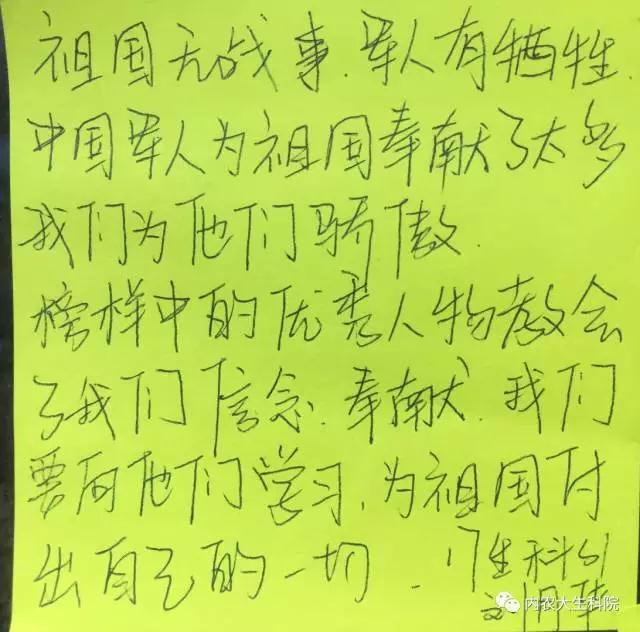 祖国无战事.军人有牺牲.
中国军人为祖国奉献了太多
我们为他们骄傲.
榜样中的优秀人物教会
了我们信念.奉献.我们
要向他们学习,为祖国付
出自己的一切.
17生科创
内农大生科院